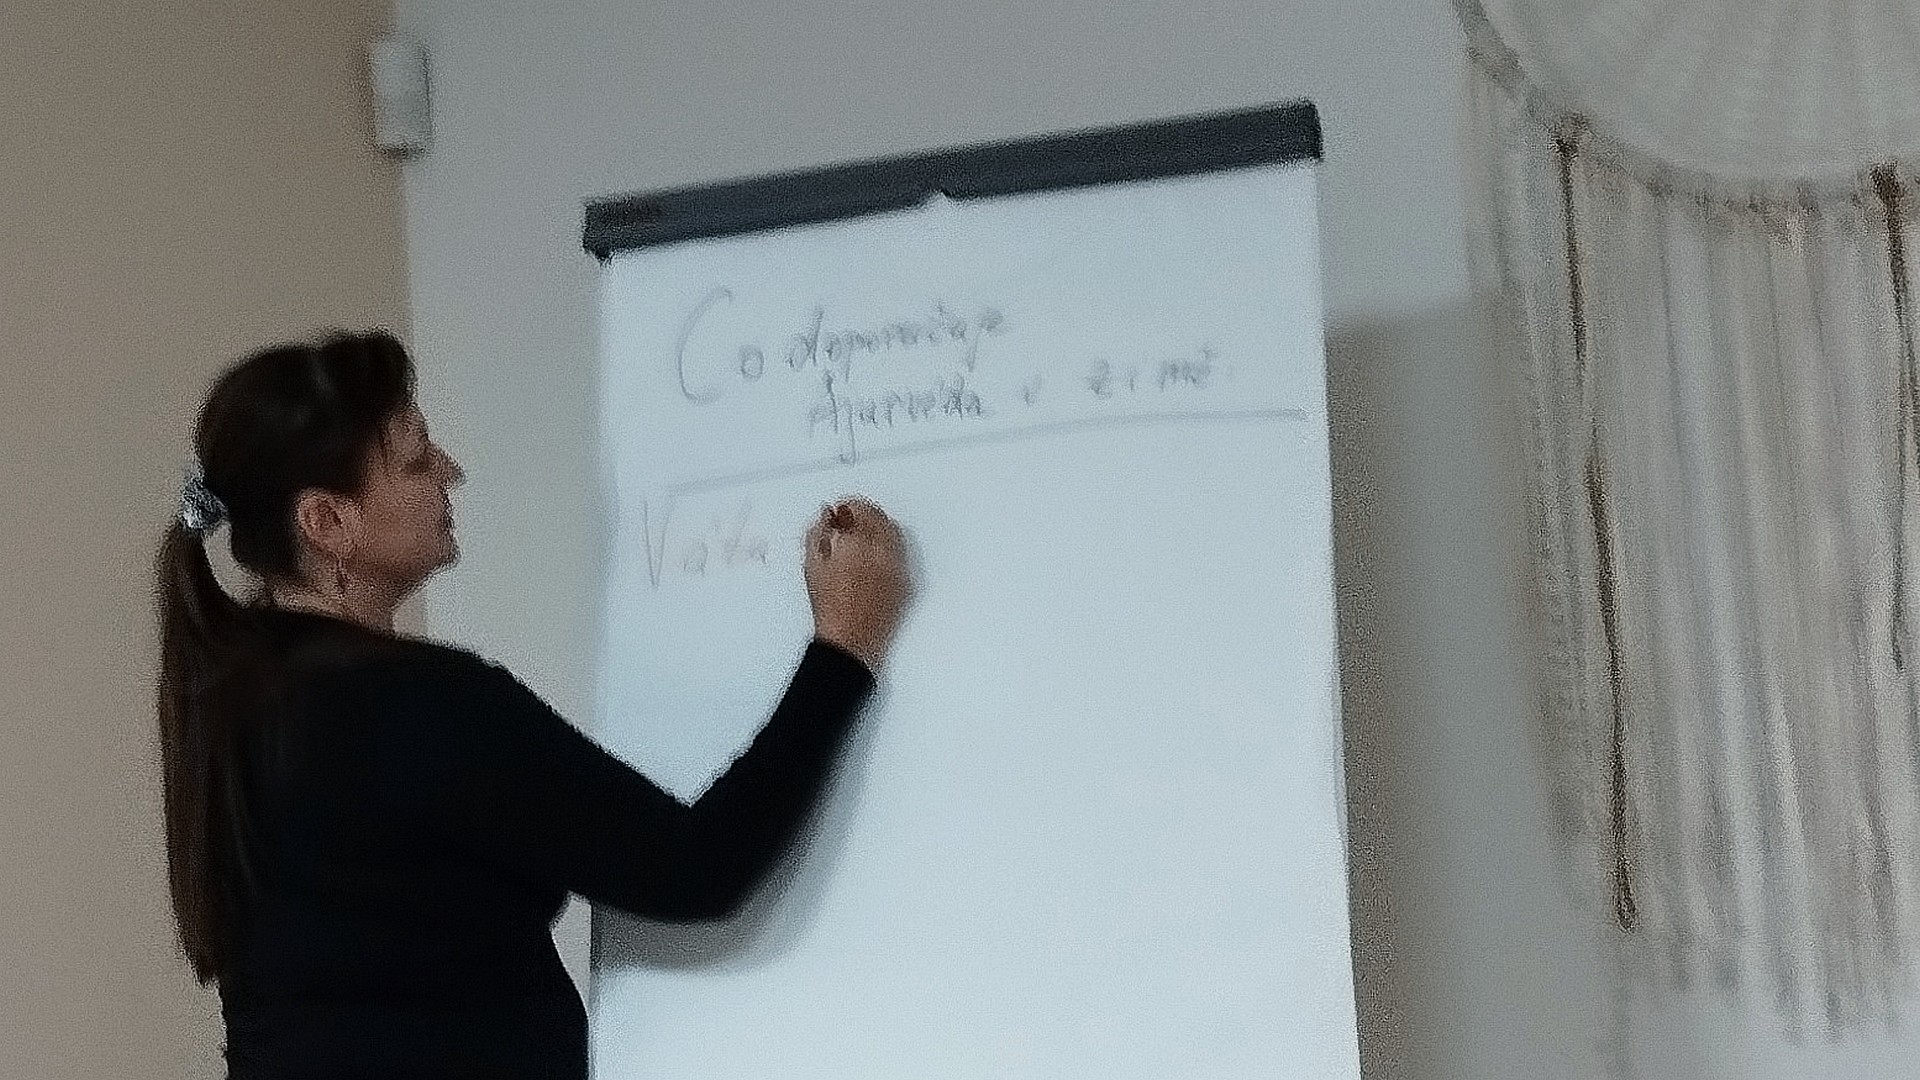 Co doporučuje
Ajurvéda v zimě.
Váta